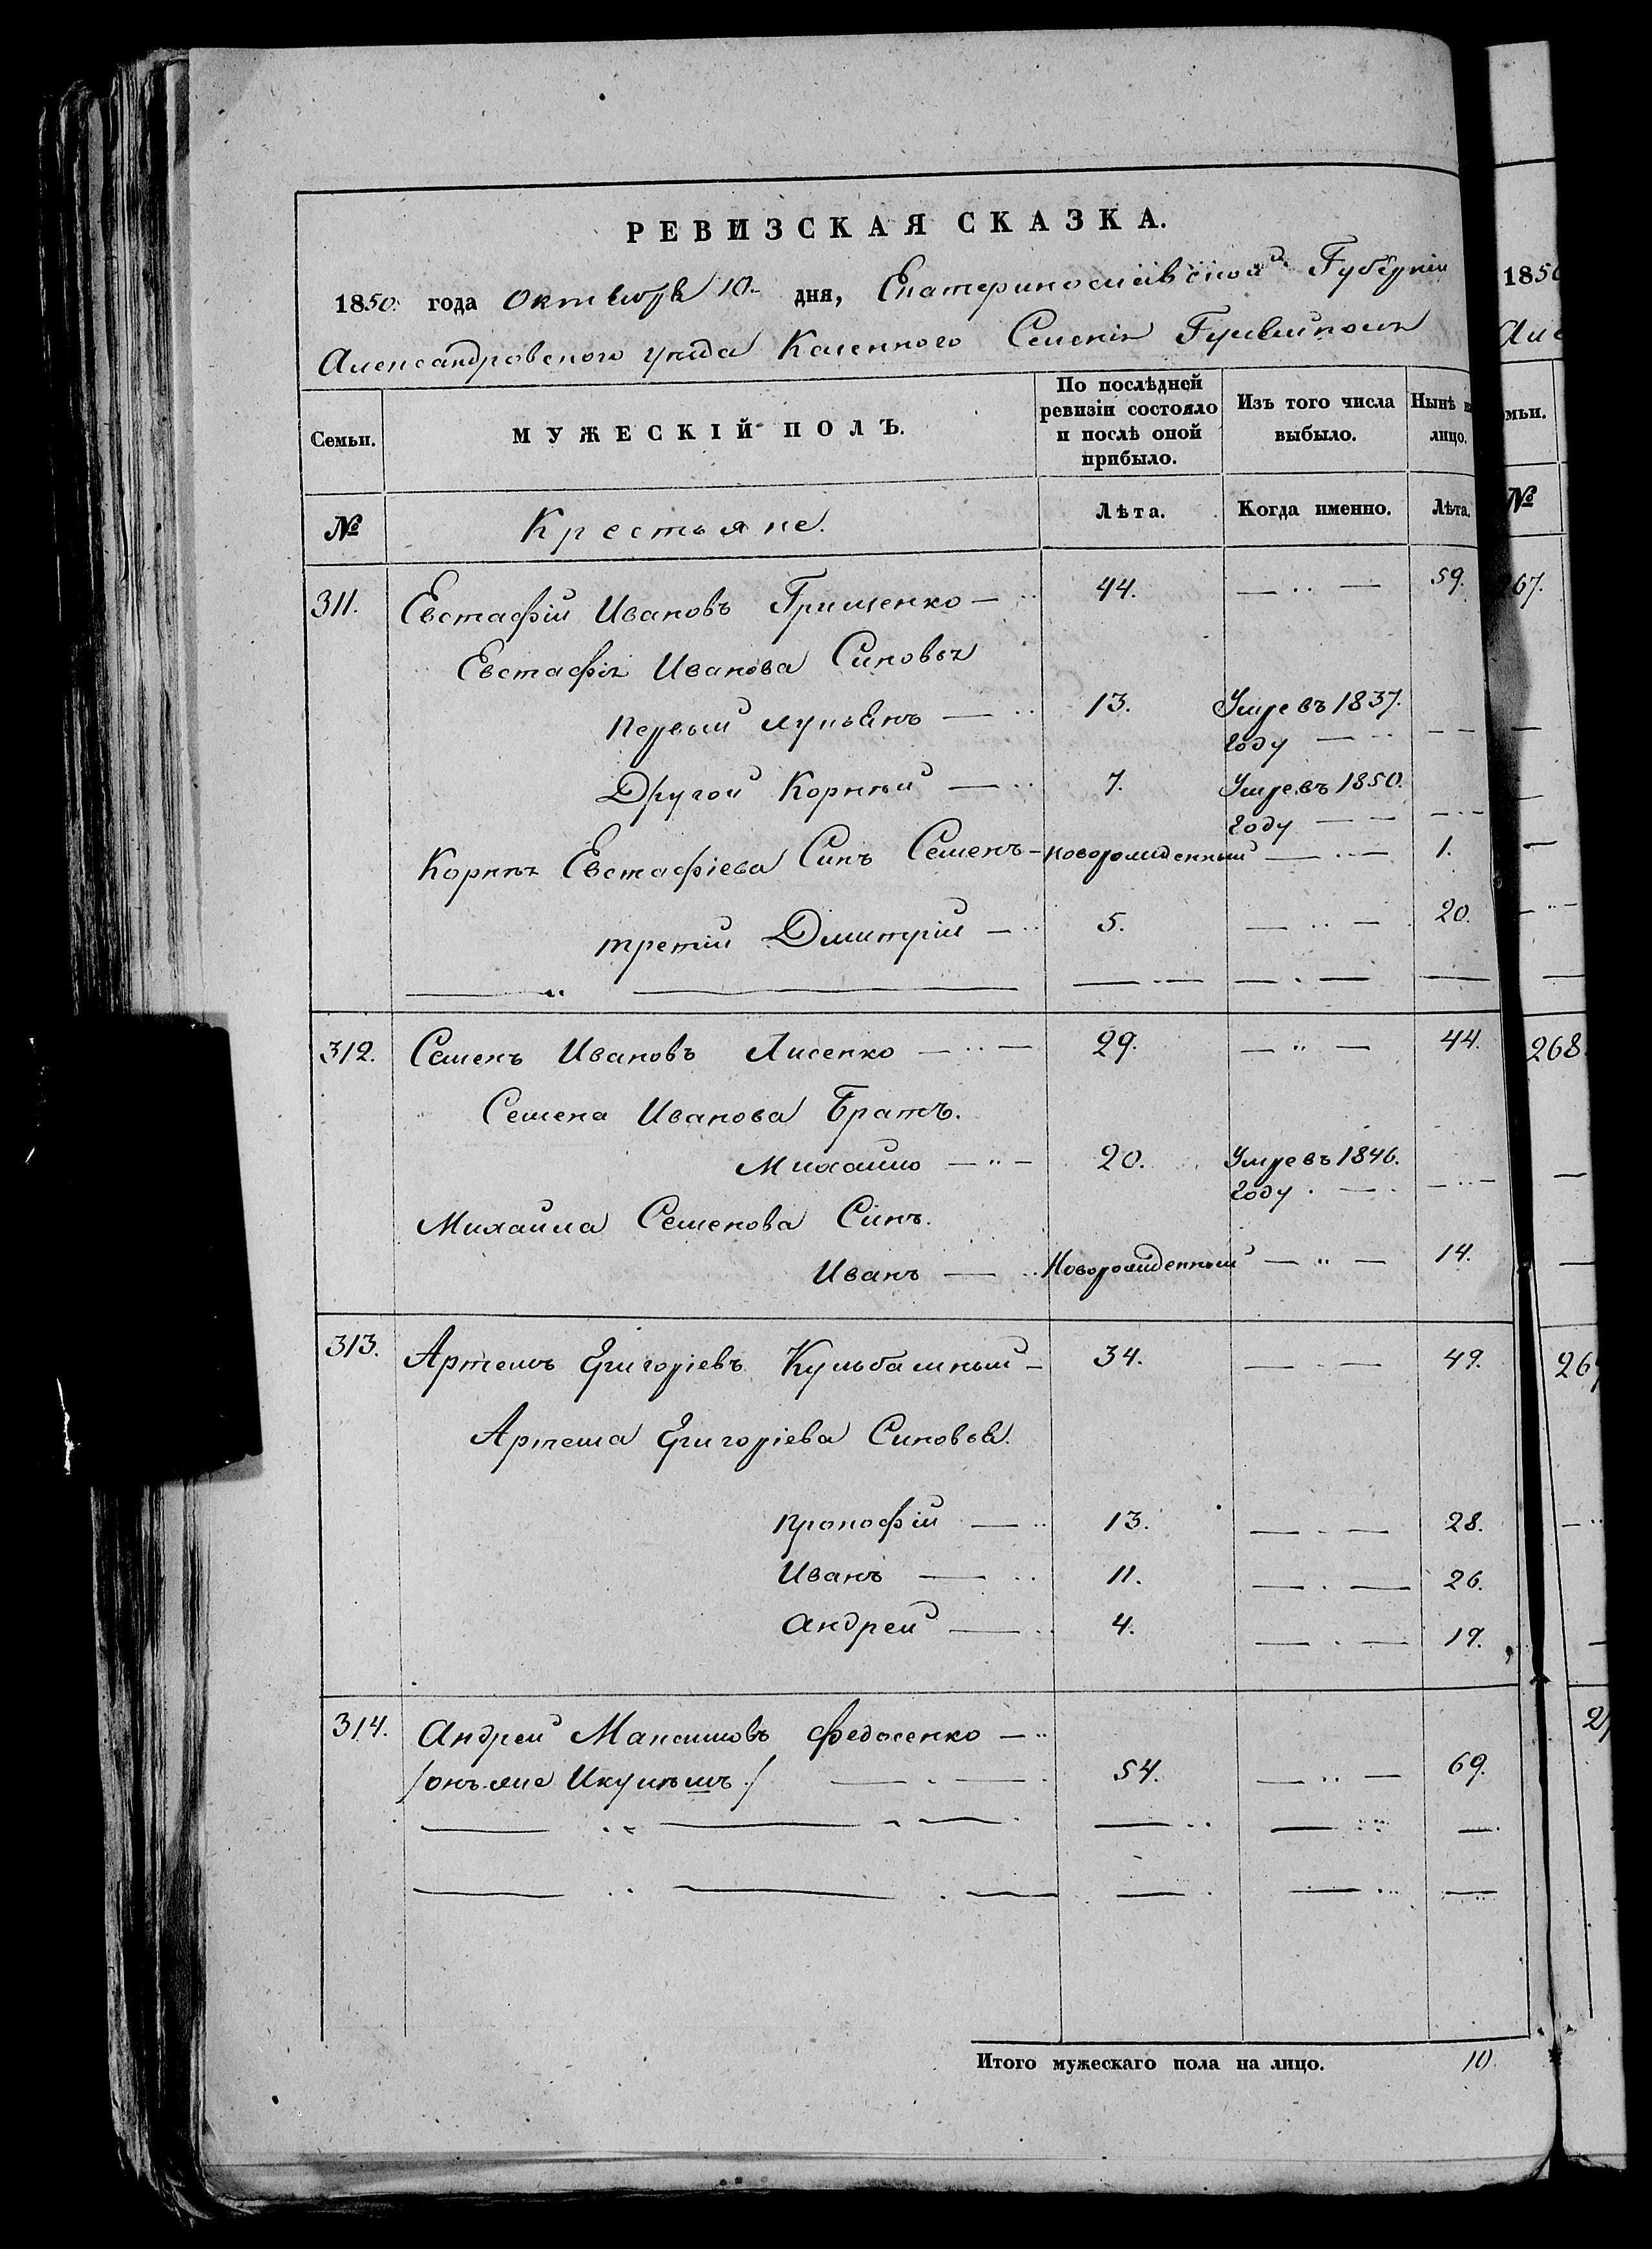 РЕВИЗСКАЯ СКАЗКА.
1850. года Октября 10. дня, Екатеринославской Губерніи
Александровского уезда Казенного Селенія Гуляйполя
Семьи.
МУЖЕСКІЙ ПОЛЪ.
По послѣдней ревизіи состояло и послѣ оной прибыло.
Изъ того числа выбыло.
Нынѣ на лицо.
№ Крестьяне. Лѣта. Когда именно. Лѣта.
311. Евстафій Ивановъ Грищенко — 44. — " — 59.
Евстафія Иванова Сыновья
первый Лукьянъ — 13. Умре въ 1837.
году — — —
Другой Корнѣй — 7. Умре въ 1850.
году — — —
Корнѣя Евстафіева Сынъ Семенъ - новорожденный — 1.
третій Дмитрій — 5. — " — 20.
312. Семенъ Ивановъ Лисенко — 29. — " — 44.
Семена Иванова Братъ.
Михайло — " — 20. Умре въ 1846.
году . — — " —
Михаила Семенова Сынъ.
Иванъ — Новорожденный — " — 14.
313. Артемъ Григорьевъ Кульбашный - 34. — 49.
Артема Григорьева Сыновья.
Прокофій — 13. — 28.
Иванъ — 11. — 26.
Андрей — 4. — 19.
314. Андрей Максимовъ Федосенко —
/онъ же / — 54. — " — 69.
Итого мужескаго пола на лицо. 10.
1850
Але
мьи.
№
267.
268.